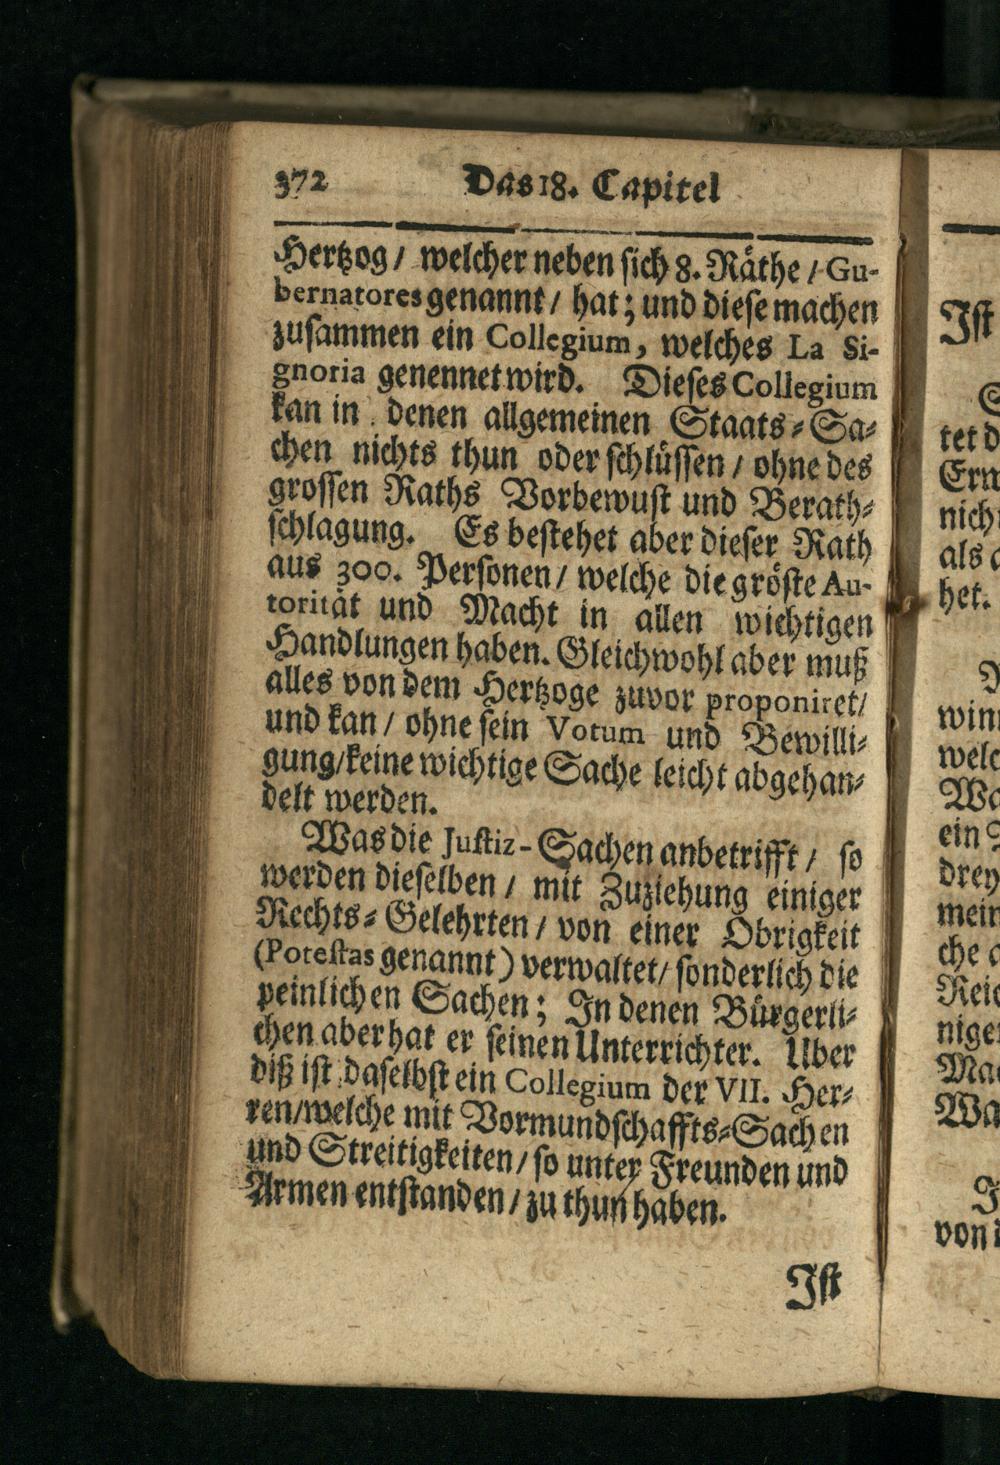 372 Das 18. Capitel
Hertzog / welcher neben sich 8. Räthe / Gu-
bernatores genannt / hat; und diese machen
zusammen ein Collegium, welches La Si-
gnoria genennet wird. Dieses Collegium
kan in denen allgemeinen Staats-Sa-
chen nichts thun oder schlüssen / ohne des
grossen Raths Vorbewust und Berath-
schlagung. Es bestehet aber dieser Rath
aus 300. Personen / welche die gröste Au-
torität und Macht in allen wichtigen
Handlungen haben. Gleichwohl aber muß
alles von dem Hertzoge zuvor proponiret/
und kan / ohne sein Votum und Bewilli-
gung/keine wichtige Sache leicht abgehan-
delt werden.
Was die Justiz-Sachen anbetrifft / so
werden dieselben / mit Zuziehung einiger
Rechts-Gelehrten / von einer Obrigkeit
(Potestas genannt) verwaltet/ sonderlich die
peinlichen Sachen; In denen Bürgerli-
chen aber hat er seinen Unterrichter. Uber
diß ist daselbst ein Collegium der VII. Her-
ren/welche mit Vormundschaffts-Sachen
und Streitigkeiten/ so unter Freunden und
Armen entstanden / zu thun haben.
Ist
Ist
tet d
Ern
nich
als
het.
win
welc
Wa
ein
drey
mein
che
Reic
nige
Ma
Wa
von